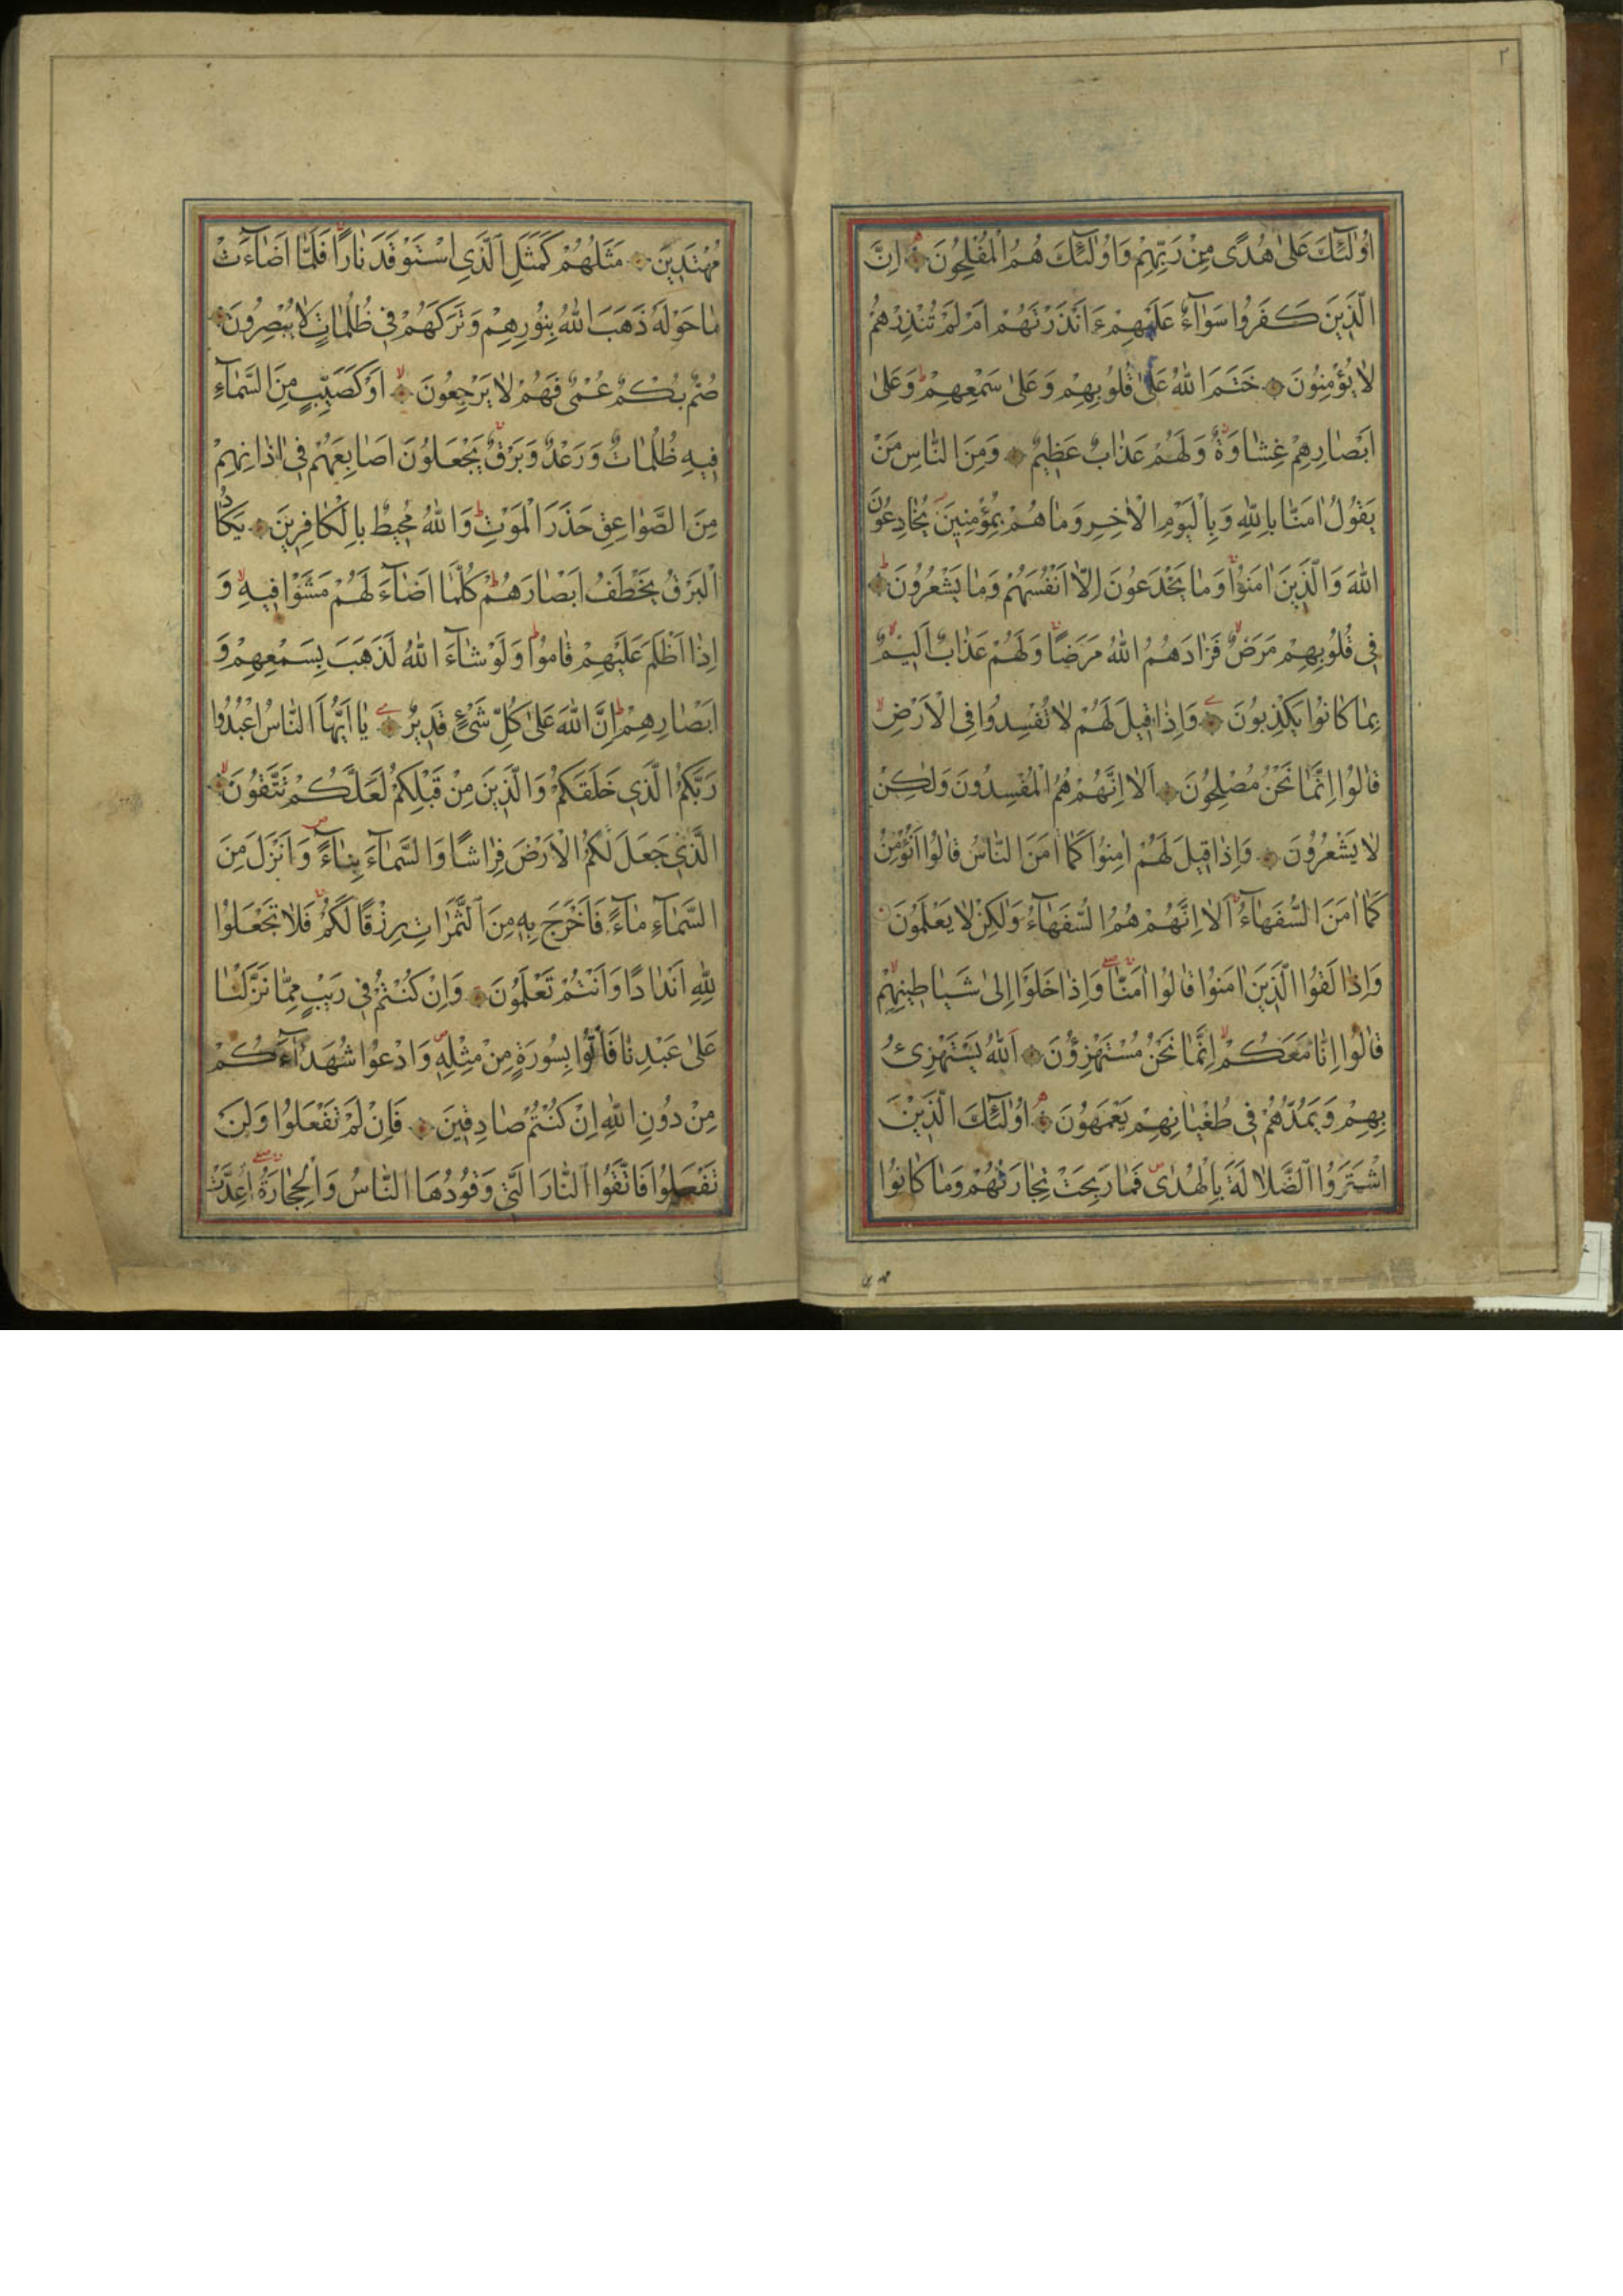 ٢
اُولٰئِكَ عَلىٰ هُدًى مِنْ رَبِّهِمْ وَاُولٰئِكَ هُمُ الْمُفْلِحُونَ اِنَّ
الَّذِينَ كَفَرُوا سَوَاۤءٌ عَلَيْهِمْ ءَاَنْذَرْتَهُمْ اَمْ لَمْ تُنْذِرْهُمْ
لَا يُؤْمِنُونَ خَتَمَ اللهُ عَلىٰ قُلُوبِهِمْ وَعَلىٰ سَمْعِهِمْ وَعَلىٰ
اَبْصَارِهِمْ غِشَاوَةٌ وَلَهُمْ عَذَابٌ عَظِيمٌ وَمِنَ النَّاسِ مَنْ
يَقُولُ اٰمَنَّا بِاللهِ وَبِالْيَوْمِ الْاٰخِرِ وَمَا هُمْ بِمُؤْمِنِينَ يُخَادِعُونَ
اللهَ وَالَّذِينَ اٰمَنُوا وَمَا يَخْدَعُونَ اِلَّا اَنْفُسَهُمْ وَمَا يَشْعُرُونَ
فِي قُلُوبِهِمْ مَرَضٌ فَزَادَهُمُ اللهُ مَرَضًا وَلَهُمْ عَذَابٌ اَلِيمٌ
بِمَا كَانُوا يَكْذِبُونَ وَاِذَا قِيلَ لَهُمْ لَا تُفْسِدُوا فِي الْاَرْضِ
قَالُوا اِنَّمَا نَحْنُ مُصْلِحُونَ اَلَا اِنَّهُمْ هُمُ الْمُفْسِدُونَ وَلٰكِنْ
لَا يَشْعُرُونَ وَاِذَا قِيلَ لَهُمْ اٰمِنُوا كَمَا اٰمَنَ النَّاسُ قَالُوا اَنُؤْمِنُ
كَمَا اٰمَنَ السُّفَهَاۤءُ اَلَا اِنَّهُمْ هُمُ السُّفَهَاۤءُ وَلٰكِنْ لَا يَعْلَمُونَ
وَاِذَا لَقُوا الَّذِينَ اٰمَنُوا قَالُوا اٰمَنَّا وَاِذَا خَلَوْا اِلىٰ شَيَاطِينِهِمْ
قَالُوا اِنَّا مَعَكُمْ اِنَّمَا نَحْنُ مُسْتَهْزِؤُنَ اَللهُ يَسْتَهْزِئُ
بِهِمْ وَيَمُدُّهُمْ فِي طُغْيَانِهِمْ يَعْمَهُونَ اُولٰئِكَ الَّذِينَ
اشْتَرَوُا الضَّلَالَةَ بِالْهُدٰى فَمَا رَبِحَتْ تِجَارَتُهُمْ وَمَا كَانُوا
مُهْتَدِينَ مَثَلُهُمْ كَمَثَلِ الَّذِي اسْتَوْقَدَ نَارًا فَلَمَّا اَضَاۤءَتْ
مَا حَوْلَهُ ذَهَبَ اللهُ بِنُورِهِمْ وَتَرَكَهُمْ فِي ظُلُمَاتٍ لَا يُبْصِرُونَ
صُمٌّ بُكْمٌ عُمْيٌ فَهُمْ لَا يَرْجِعُونَ اَوْ كَصَيِّبٍ مِنَ السَّمَاۤءِ
فِيهِ ظُلُمَاتٌ وَرَعْدٌ وَبَرْقٌ يَجْعَلُونَ اَصَابِعَهُمْ فِي اٰذَانِهِمْ
مِنَ الصَّوَاعِقِ حَذَرَ الْمَوْتِ وَاللهُ مُحِيطٌ بِالْكَافِرِينَ يَكَادُ
الْبَرْقُ يَخْطَفُ اَبْصَارَهُمْ كُلَّمَا اَضَاۤءَ لَهُمْ مَشَوْا فِيهِ وَ
اِذَا اَظْلَمَ عَلَيْهِمْ قَامُوا وَلَوْ شَاۤءَ اللهُ لَذَهَبَ بِسَمْعِهِمْ وَ
اَبْصَارِهِمْ اِنَّ اللهَ عَلىٰ كُلِّ شَيْءٍ قَدِيرٌ يَا اَيُّهَا النَّاسُ اعْبُدُوا
رَبَّكُمُ الَّذِي خَلَقَكُمْ وَالَّذِينَ مِنْ قَبْلِكُمْ لَعَلَّكُمْ تَتَّقُونَ
الَّذِي جَعَلَ لَكُمُ الْاَرْضَ فِرَاشًا وَالسَّمَاۤءَ بِنَاۤءً وَاَنْزَلَ مِنَ
السَّمَاۤءِ مَاۤءً فَاَخْرَجَ بِهِ مِنَ الثَّمَرَاتِ رِزْقًا لَكُمْ فَلَا تَجْعَلُوا
لِلّٰهِ اَنْدَادًا وَاَنْتُمْ تَعْلَمُونَ وَاِنْ كُنْتُمْ فِي رَيْبٍ مِمَّا نَزَّلْنَا
عَلىٰ عَبْدِنَا فَأْتُوا بِسُورَةٍ مِنْ مِثْلِهِ وَادْعُوا شُهَدَاۤءَكُمْ
مِنْ دُونِ اللهِ اِنْ كُنْتُمْ صَادِقِينَ فَاِنْ لَمْ تَفْعَلُوا وَلَنْ
تَفْعَلُوا فَاتَّقُوا النَّارَ الَّتِي وَقُودُهَا النَّاسُ وَالْحِجَارَةُ اُعِدَّتْ